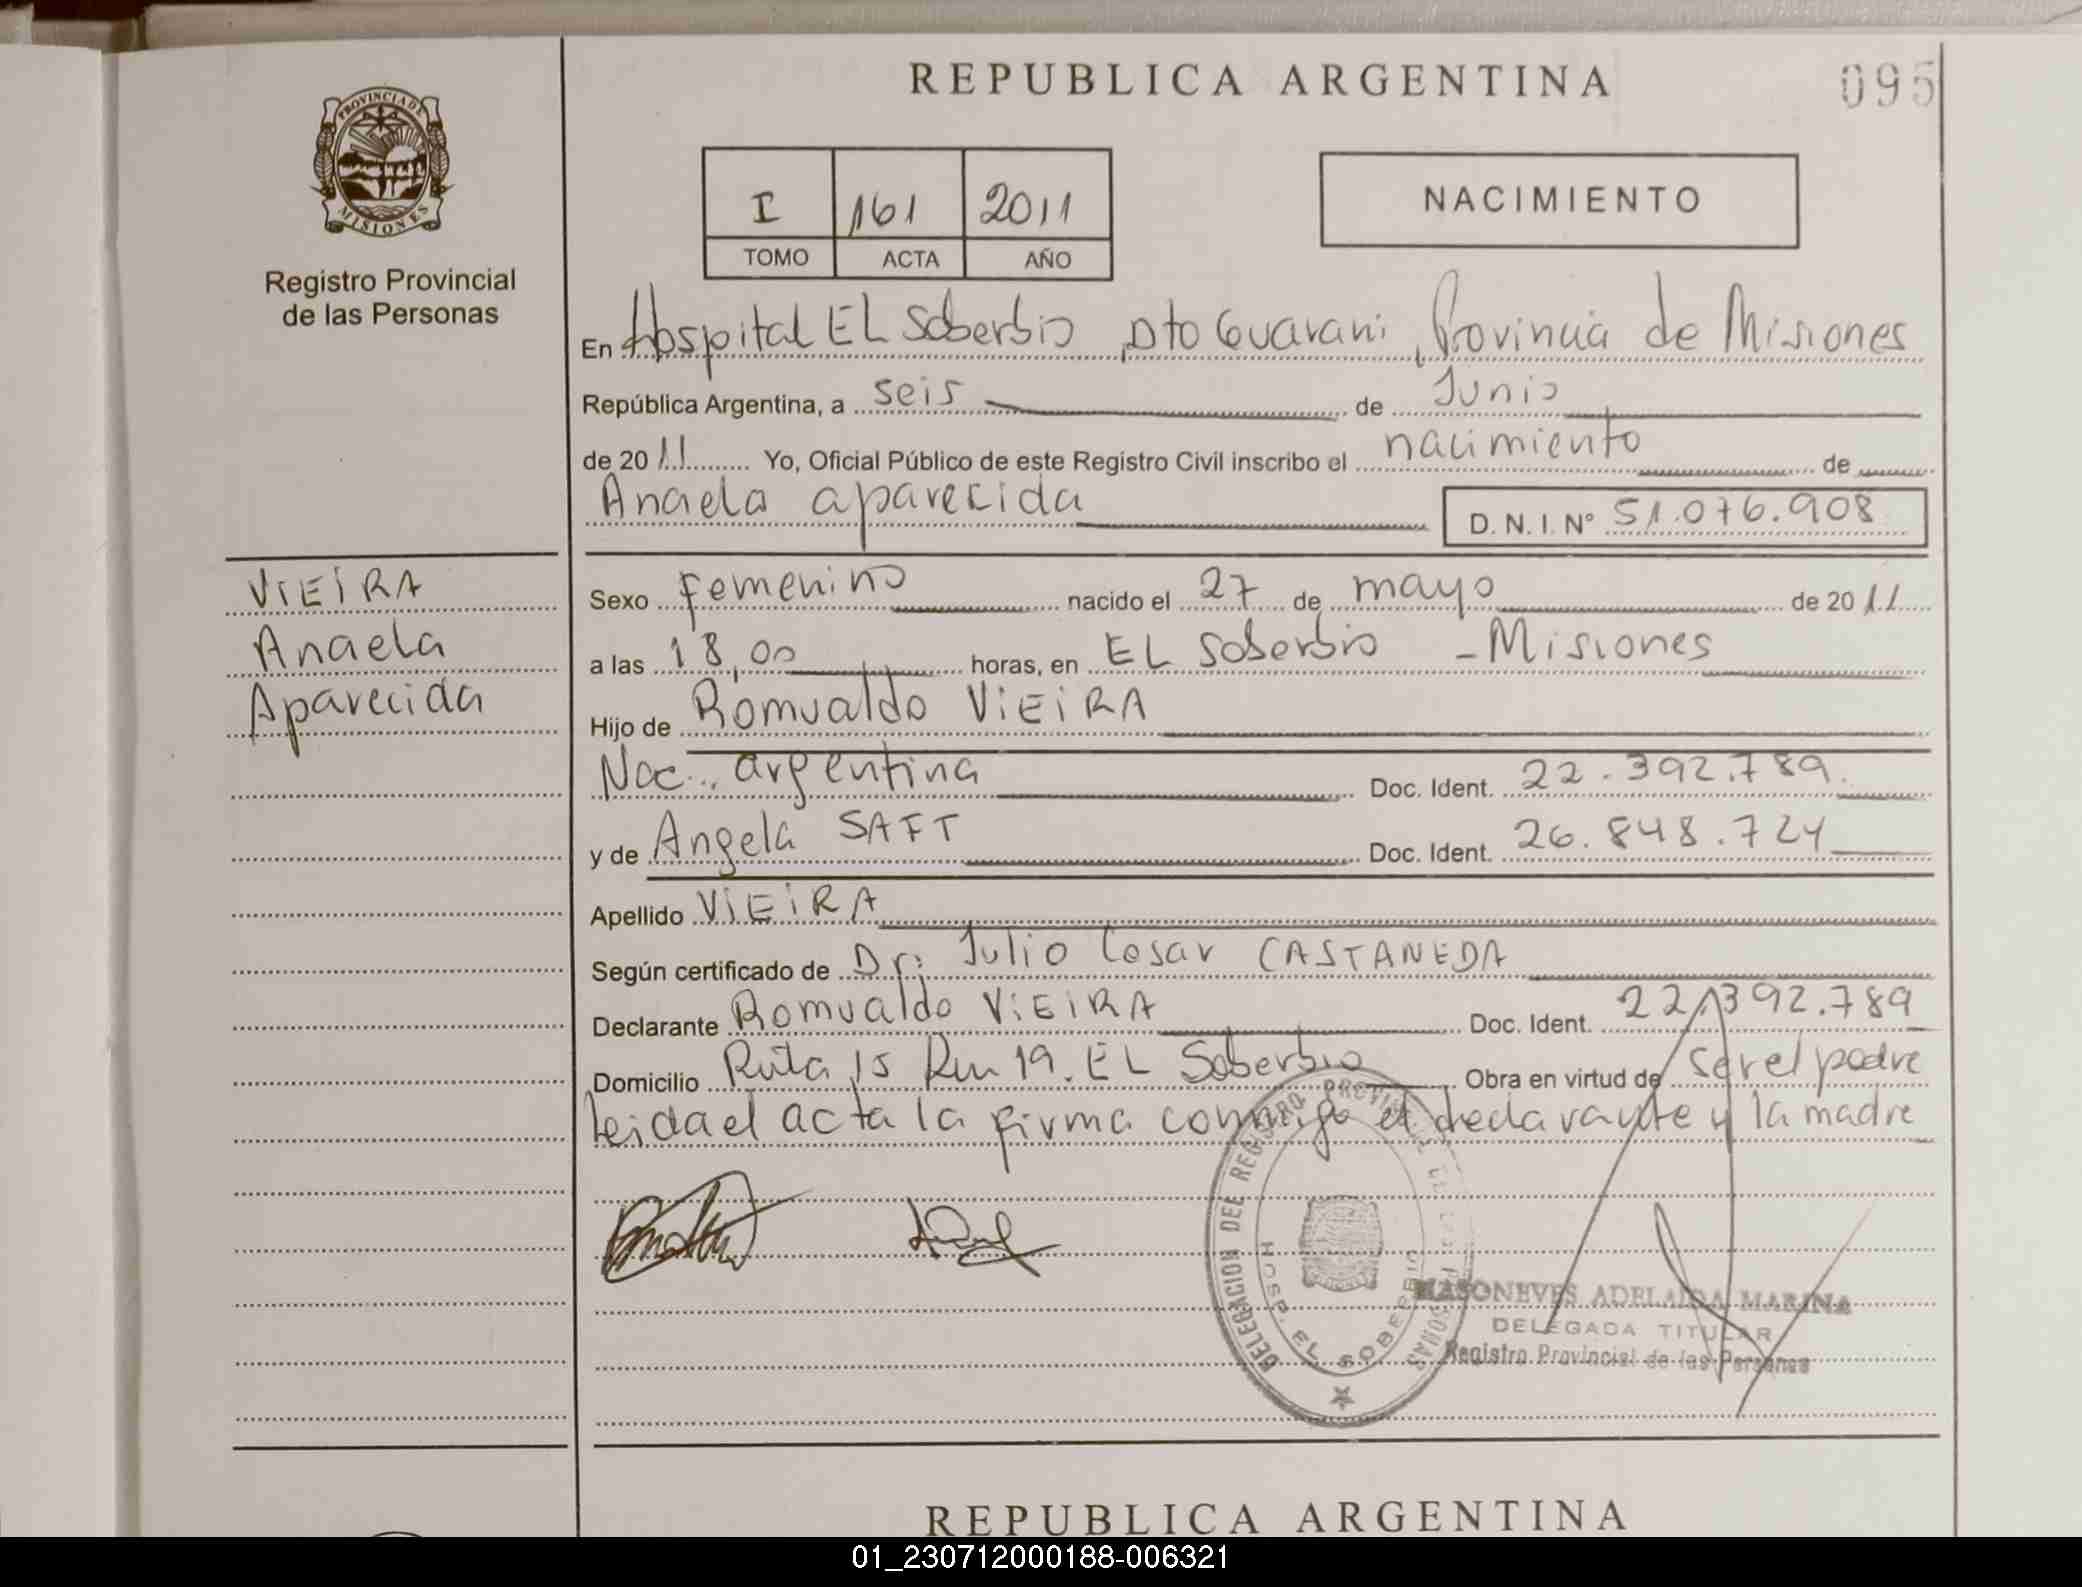 REPUBLICA ARGENTINA
095
PROVINCIA DE
MISIONES
Registro Provincial
de las Personas
I 161 2011
TOMO ACTA AÑO
NACIMIENTO
En Hospital EL Soberbio, Dto Guarani, Provincia de Misiones
República Argentina, a seis de Junio
de 2011 Yo, Oficial Público de este Registro Civil inscribo el nacimiento de
Anaela aparecida D. N. I. Nº 51.076.908
VIEIRA
Anaela
Aparecida
Sexo Femenino nacido el 27 de mayo de 2011
a las 18,00 horas, en EL Soberbio - Misiones
Hijo de Romualdo VIEIRA
Nac.. argentina Doc. Ident. 22.392.789.
y de Angela SAFT Doc. Ident. 26.848.724
Apellido VIEIRA
Según certificado de Dr: Julio Cesar CASTANEDA
Declarante Romualdo VIEIRA Doc. Ident. 22.392.789
Domicilio Ruta 15 Km 19. EL Soberbio Obra en virtud de ser el padre
leida el acta la firma conmigo el declarante y la madre
DELEGACION DEL REGISTRO PROVINCIAL DE LAS PERSONAS
HOSP. EL SOBERBIO
MASONEVES ADELAIDA MARINA
DELEGADA TITULAR
Registro Provincial de las Personas
REPUBLICA ARGENTINA
01_230712000188-006321